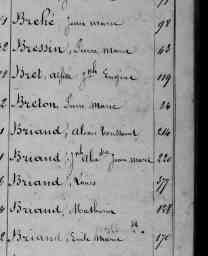 Brehé, Jean Marie 98
2 Bressin, Pierre Marie 43
1 Bret, Jph Eugène 119
2 Breton, Pierre Marie 24
1 Briand, Toussaint 214
1 Briand, Jean Marie 220
6 Briand, Louis 577
4 Briand, Mathurin 128
2 Briand, Emile Marie 170